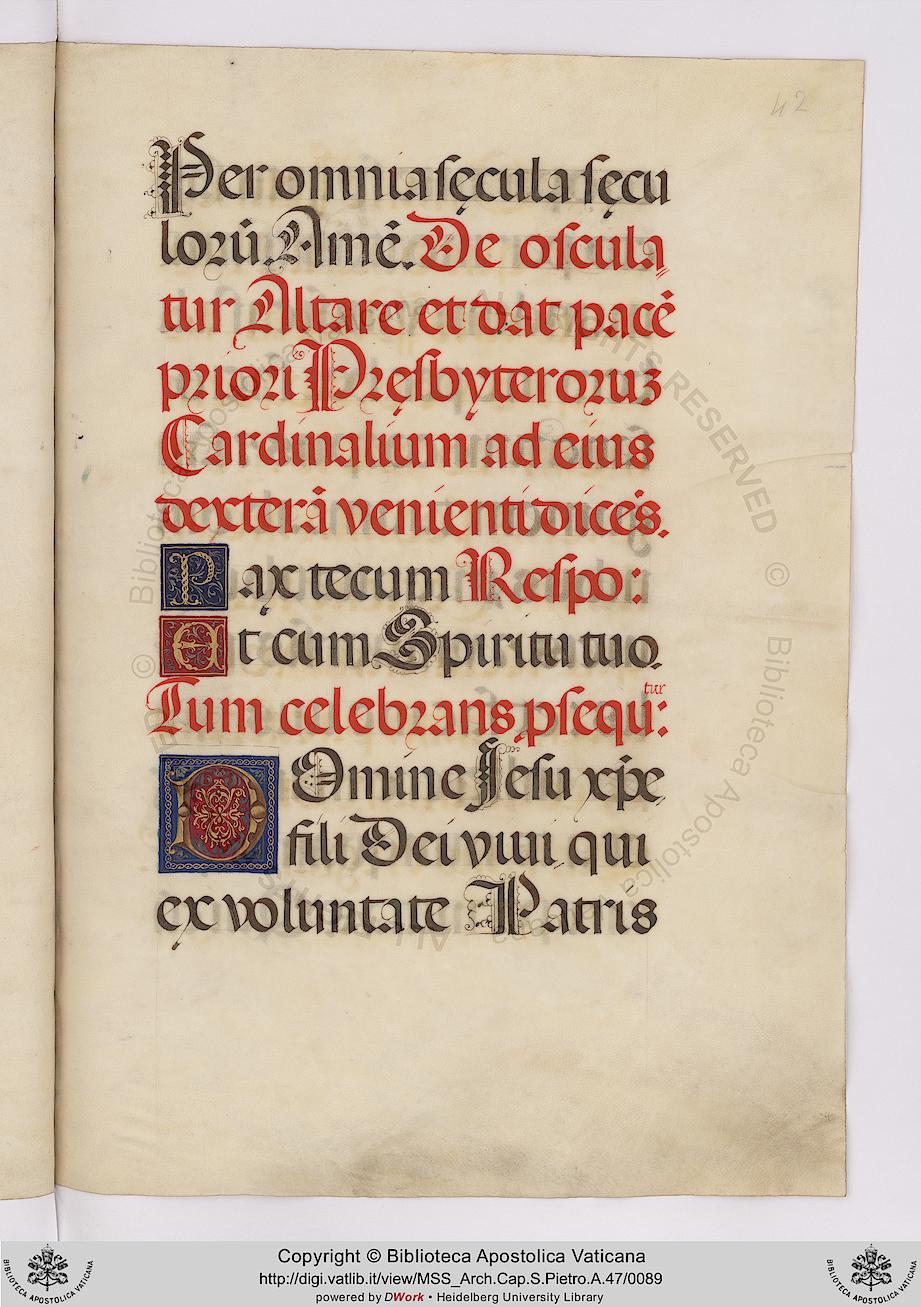 42
Per omnia sęcula sęcu
lorū. Amē. De oscula
tur Altare et dat pacē
priori Pręsbyteroruꝫ
Cardinalium ad eius
dexterā venienti dicēs.
Pax tecum Respo:
Et cum Spiritu tuo.
tur
Tum celebrans ꝓsequi:
Domine Jesu xp̄e
fili Dei viui qui
ex voluntate Patris
Copyright © Biblioteca Apostolica Vaticana
http://digi.vatlib.it/view/MSS_Arch.Cap.S.Pietro.A.47/0089
powered by DWork • Heidelberg University Library
BIBLIOTECA APOSTOLICA VATICANA
BIBLIOTECA APOSTOLICA VATICANA